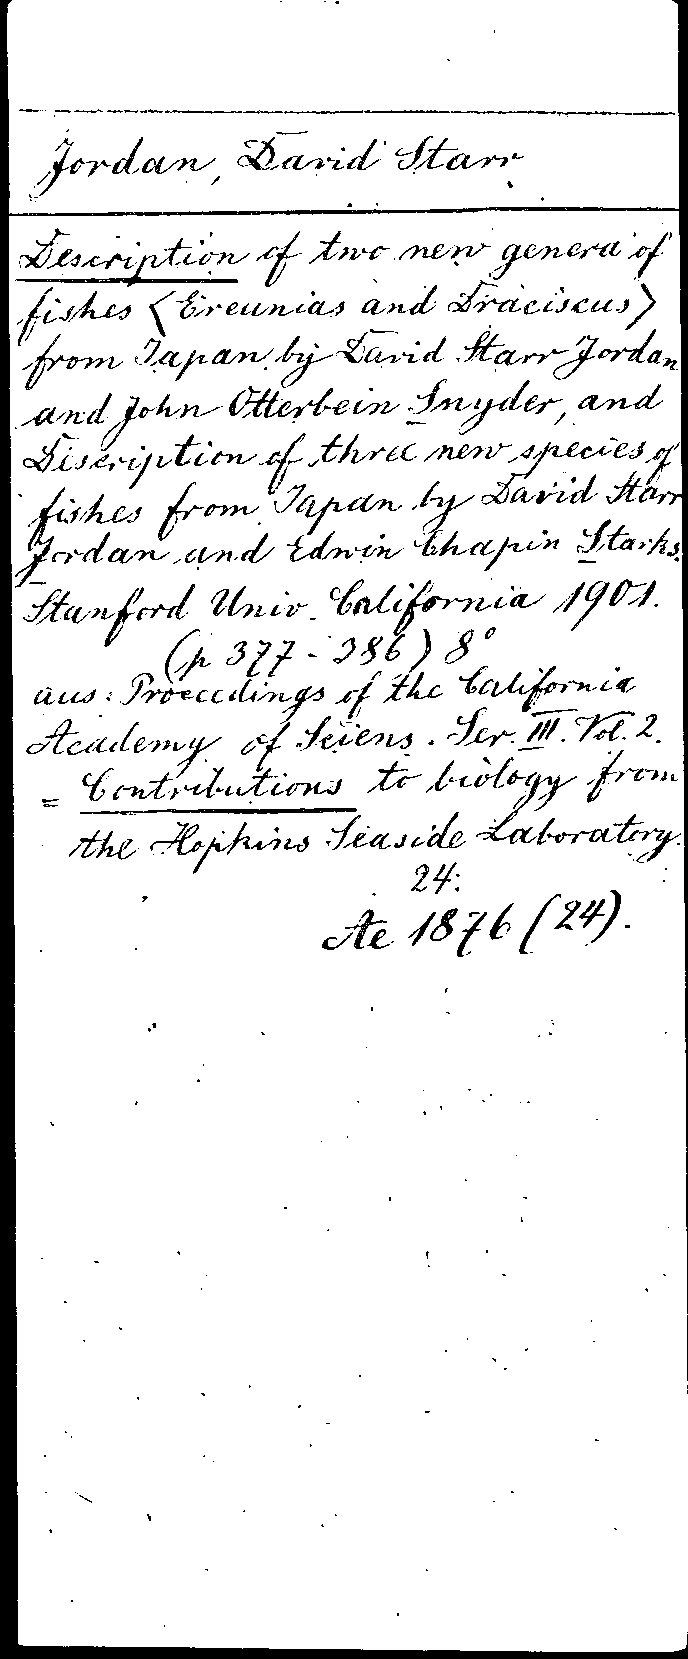 Jordan, David Starr
Description of two new genera of
fishes <Ereunias and Draciscus>
from Japan by David Starr Jordan
and John Otterbein Snyder, and
Discription of three new species of
fishes from Japan by David Starr
Jordan and Edwin Chapin Starks.
Stanford Univ. California 1901.
(p 377-386) 8°
aus: Proceedings of the California
Academy of Sciens. Ser. III. Vol. 2.
= Contributions to biology from
the Hopkins Seaside Laboratory.
24.
Ae 1876 (24).